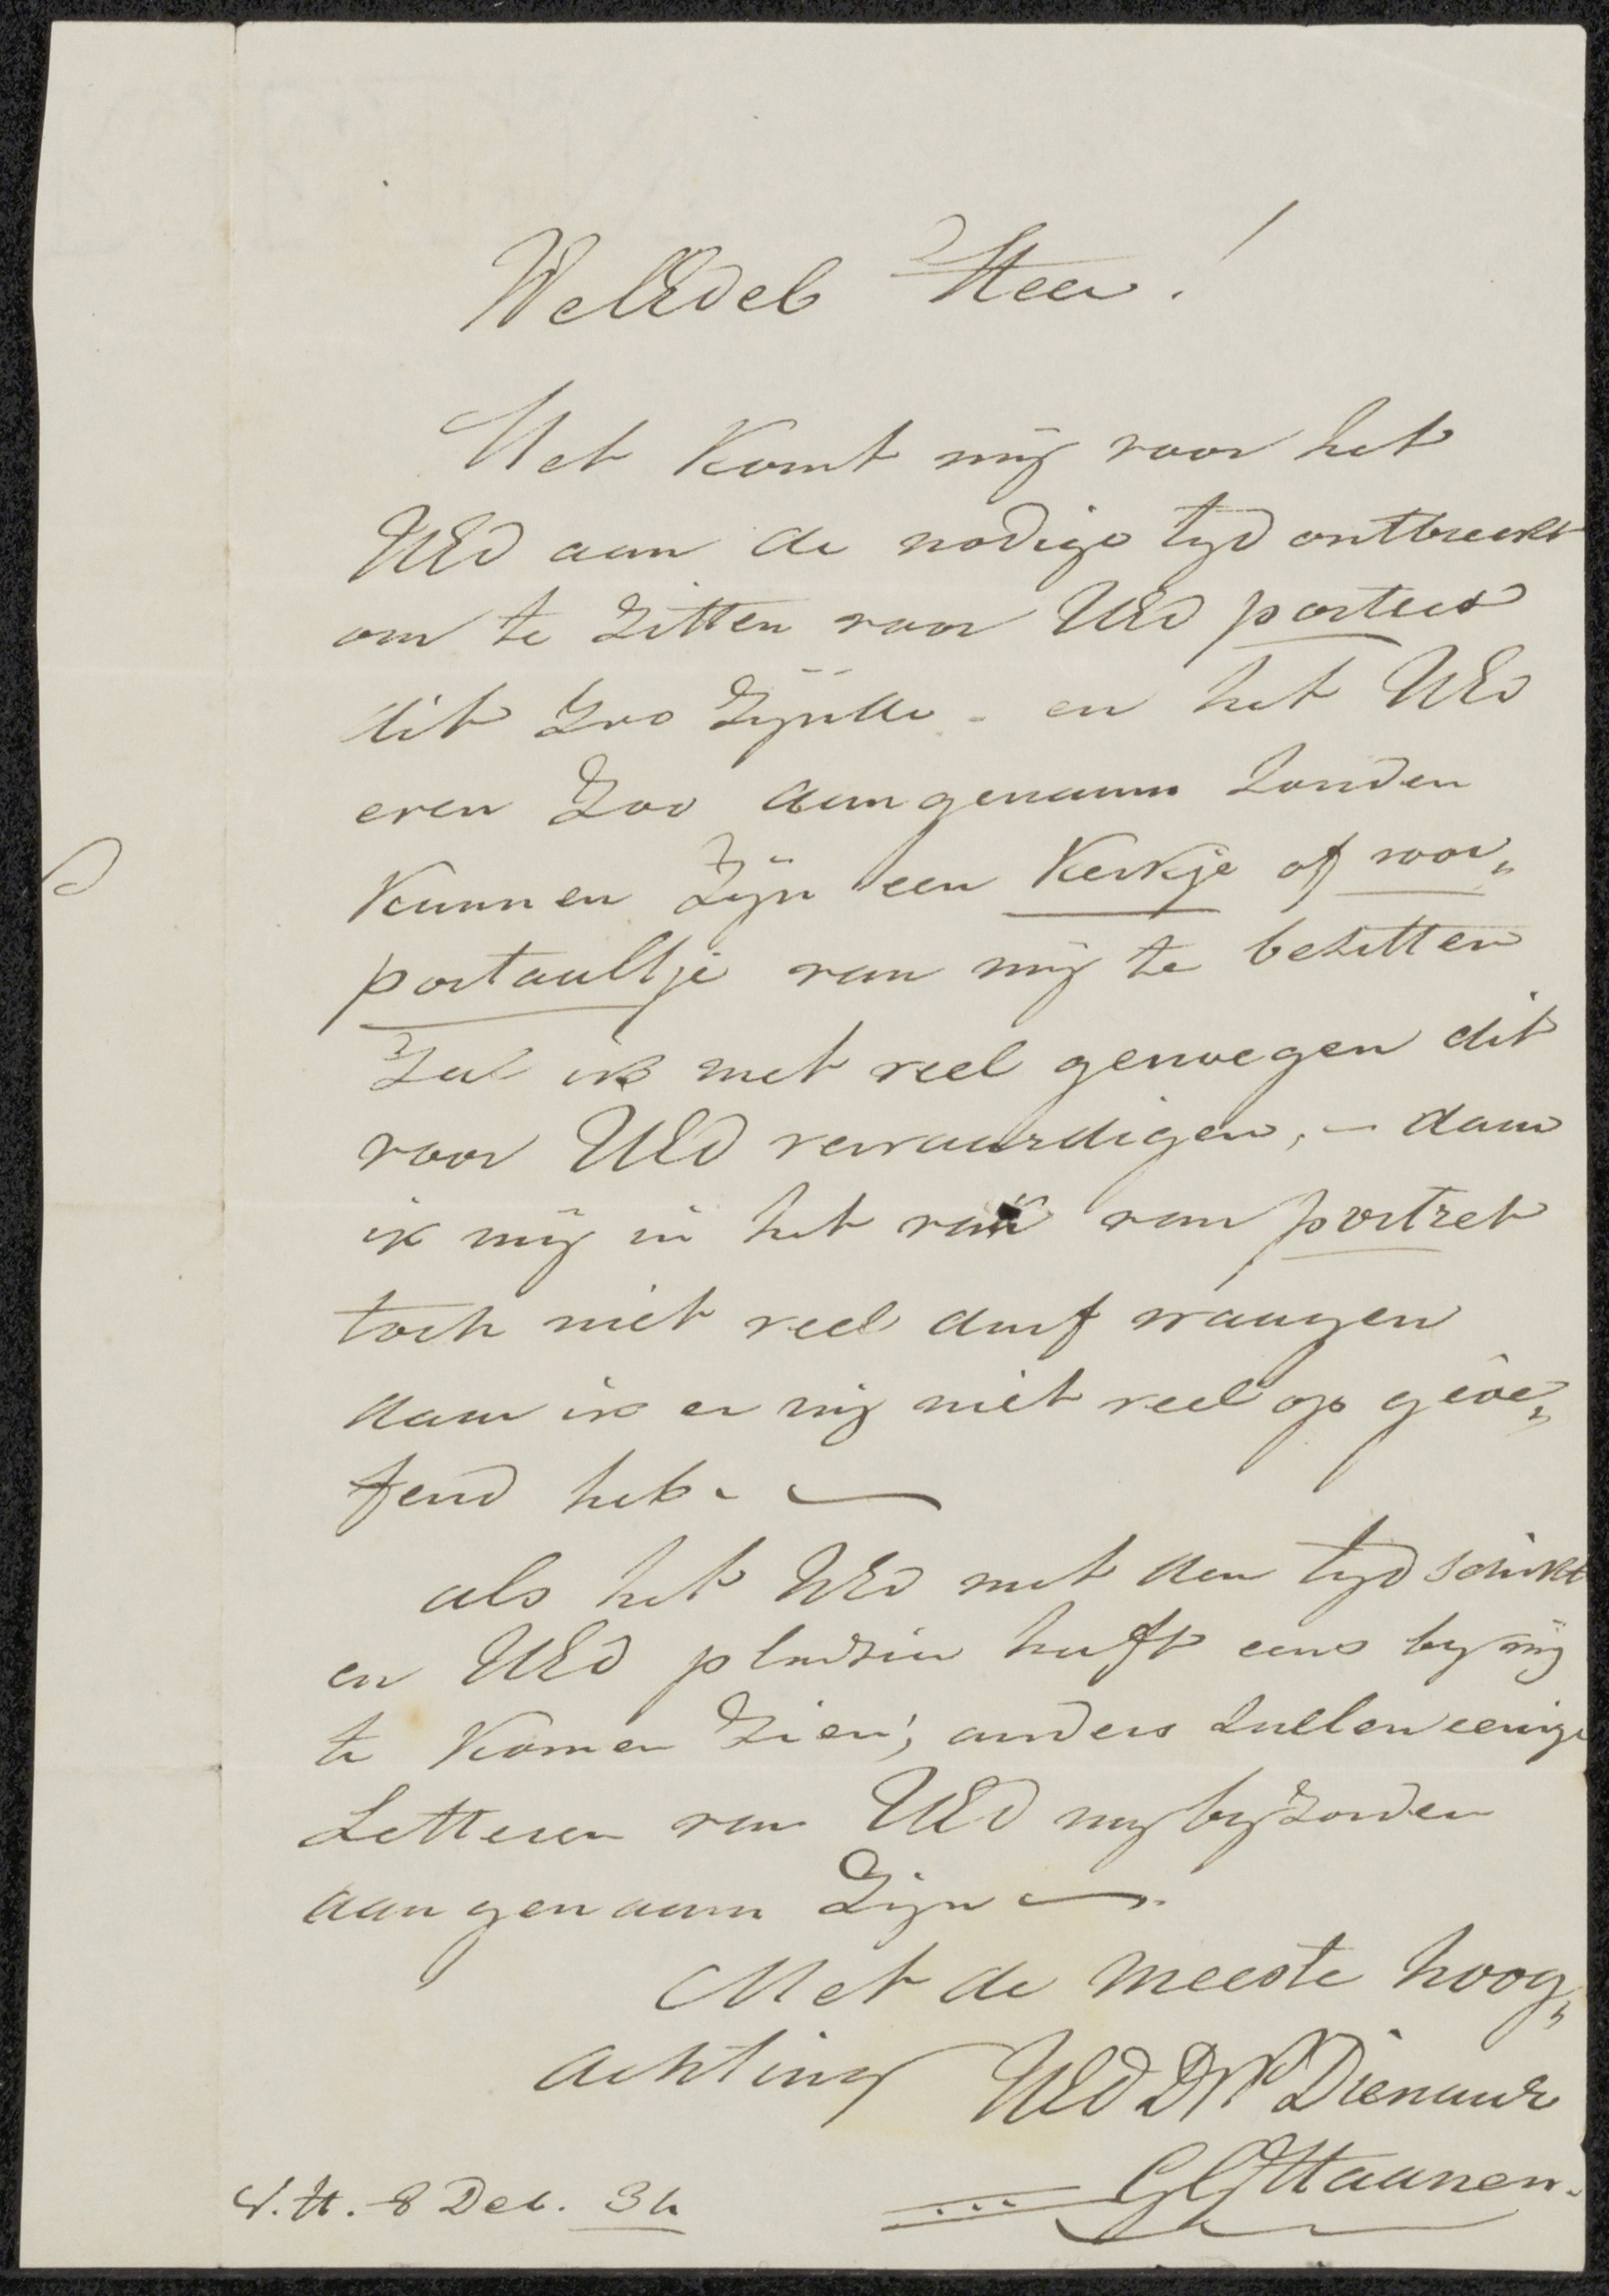 WelEdel Heer!
Het komt mij voor het
UEd aan de nodige tyd ontbreekt
om te zitten voor UEd portret
dit zoo zijnde - en het UEd
even zoo aangenaam zouden
kunnen zijn een Kerkje of voor„
portaaltje van mij te bezitten
Zal ik met veel genoegen dit
voor UEd vervaardigen, - daar
ik mij in het vak van portret
toch niet veel durf waagen
daar ik er mij niet veel op geöe„
fend heb. —
als het UEd met den tyd schikt
en UEd plaisier heeft eens by mij
te komen zien; anders zullen eenige
Letteren van UEd my byzonder
aangenaam Zijn —.
Met de meeste hoog„
achting UEd DW Dienaar
GGHaanen.
V. H. 8 Dec. 34